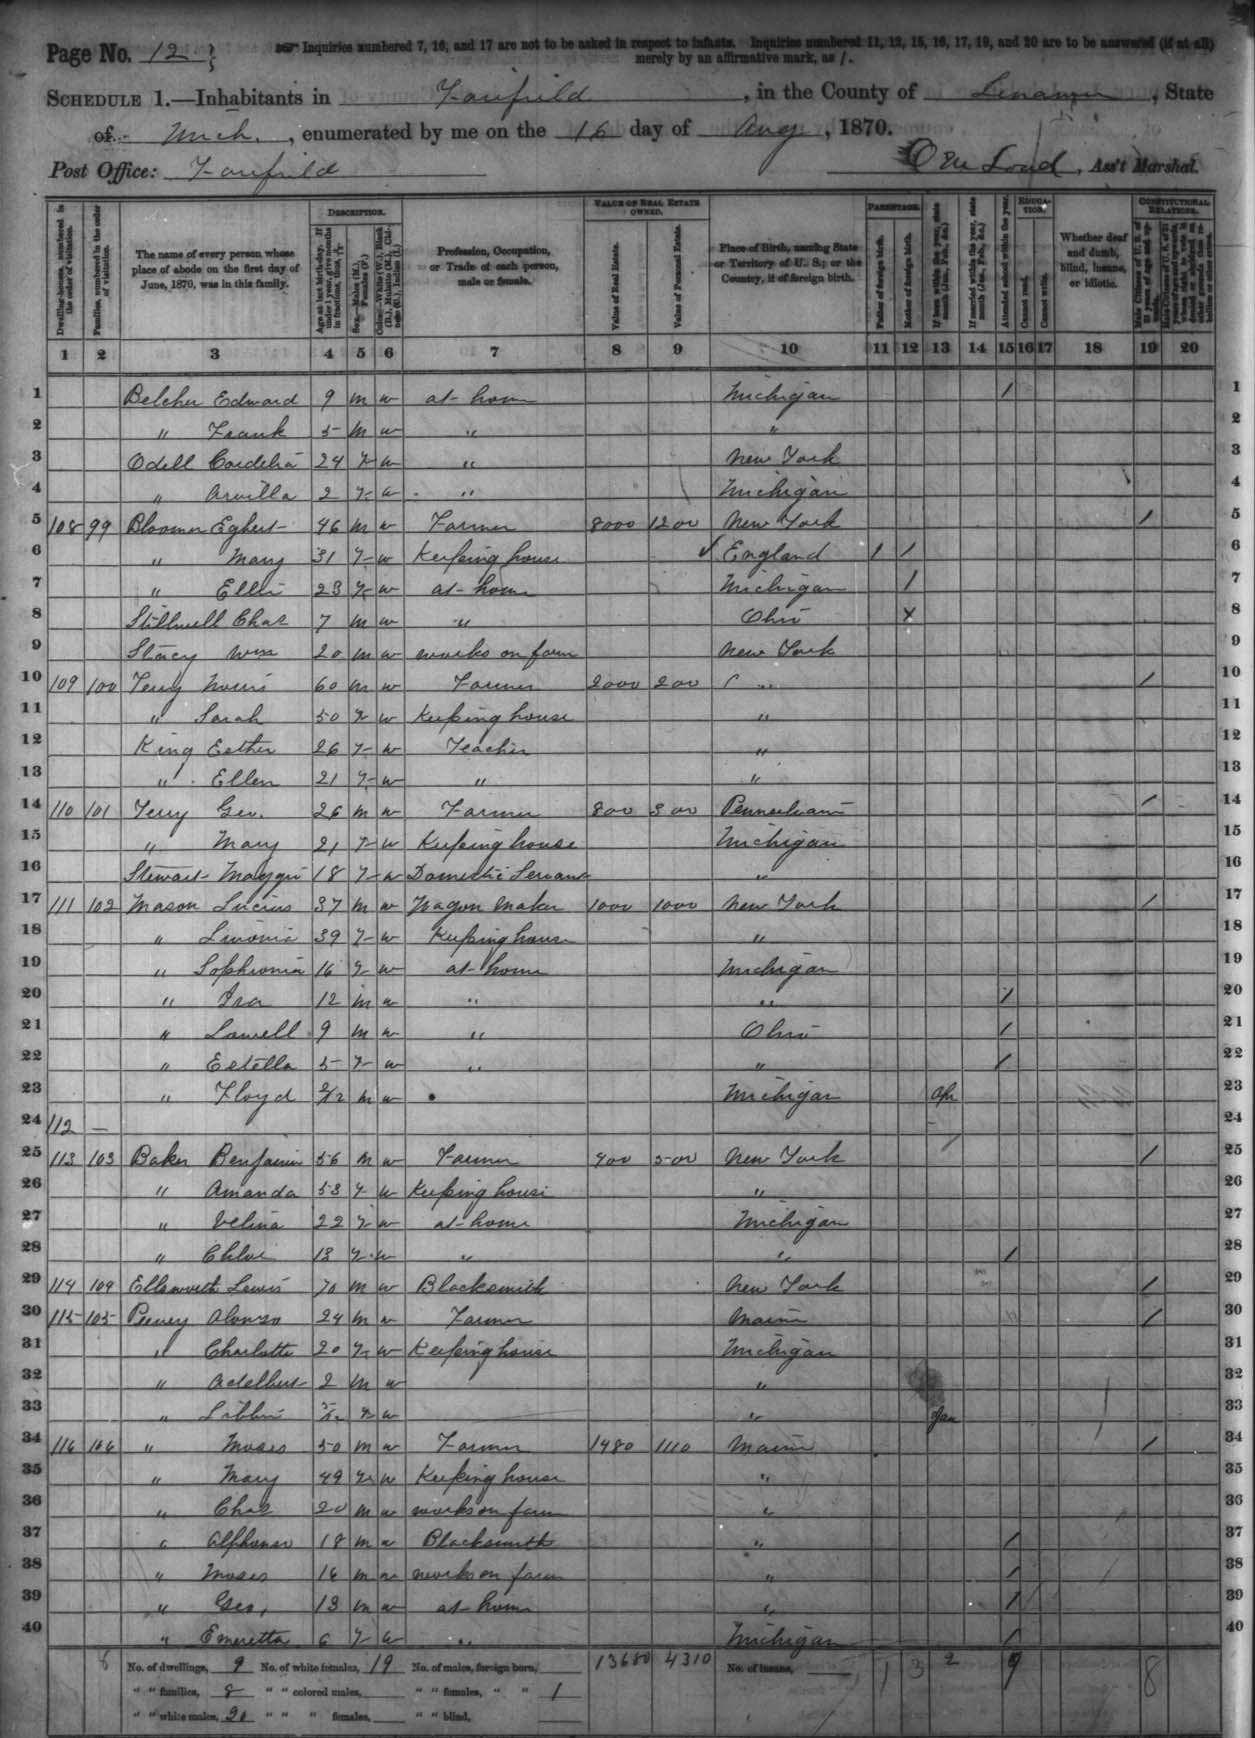 Page No. 12
Inquiries numbered 7, 16, and 17 are not to be asked in respect to infants. Inquiries numbered 11, 12, 15, 16, 17, 19, and 20 are to be answered (if at all)
merely by an affirmative mark, as /.
SCHEDULE 1.—Inhabitants in Fairfield, in the County of Lenawee, State
of Mich., enumerated by me on the 16 day of Aug, 1870.
Post Office: Fairfield
Ass't Marshal.
Dwelling-houses, numbered in the order of visitation.
Families, numbered in the order of visitation.
The name of every person whose place of abode on the first day of June, 1870, was in this family.
DESCRIPTION.
Age at last birth-day. If under 1 year, give months in fractions, thus, 3/12
Sex.—Males (M.), Females (F.)
Color.—White (W.), Black (B.), Mulatto (M.), Chinese (C.), Indian (I.)
Profession, Occupation, or Trade of each person, male or female.
VALUE OF REAL ESTATE OWNED.
Value of Real Estate.
Value of Personal Estate.
Place of Birth, naming State or Territory of U. S.; or the Country, if of foreign birth.
PARENTAGE.
Father of foreign birth.
Mother of foreign birth.
If born within the year, state month (Jan., Feb., &c.)
If married within the year, state month (Jan., Feb., &c.)
Attended school within the year.
EDUCATION.
Cannot read.
Cannot write.
Whether deaf and dumb, blind, insane, or idiotic.
CONSTITUTIONAL RELATIONS.
Male Citizens of U. S. of 21 years of age and upwards.
1 2 3 4 5 6 7 8 9 10 11 12 13 14 15 16 17 18 19 20
1 Belcher Edward 9 m w at home Michigan / 1
2 " Frank 5 m w " " 2
3 Odell Cordelia 24 f w " New York 3
4 " Arvilla 2 f w " Michigan 4
5 108 99 Bloomer Egbert 46 m w Farmer 8000 1200 New York / 5
6 " Mary 31 f w Keeping house ✓ England / / 6
7 " Ellie 23 f w at home Michigan / 7
8 Stillwell Chas 7 m w " Ohio x 8
9 Stacy Wm 20 m w works on farm New York 9
10 109 100 Terry Norris 60 m w Farmer 2000 200 " / 10
11 " Sarah 50 f w Keeping house " 11
12 King Esther 26 f w Teacher " 12
13 " Ellen 21 f w " " 13
14 110 101 Terry Geo. 26 m w Farmer 800 300 Pennsylvania / 14
15 " Mary 21 f w Keeping house Michigan 15
16 Stewart Maggie 18 f w Domestic Servant " 16
17 111 102 Mason Lucius 37 m w Wagon Maker 1000 1000 New York / 17
18 " Livonia 39 f w Keeping house " 18
19 " Sophronia 16 f w at home Michigan 19
20 " Ira 12 m w " " / 20
21 " Lowell 9 m w " Ohio / 21
22 " Estella 5 f w " " / 22
23 " Floyd 2/12 m w Michigan Apr 23
24 112 — 24
25 113 103 Baker Benjamin 56 m w Farmer 400 500 New York / 25
26 " Amanda 53 f w Keeping house " 26
27 " Velina 22 f w at home Michigan 27
28 " Chloe 13 f w " " / 28
29 114 104 Ellsworth Lewis 70 m w Blacksmith New York / 29
30 115 105 Peeney Alonzo 24 m w Farmer Maine / 30
31 " Charlotte 20 f w Keeping house Michigan 31
32 " Adelbert 2 m w " 32
33 " Libbie 5/12 f w " Jan 33
34 116 106 " Moses 50 m w Farmer 1480 1110 Maine / 34
35 " Mary 49 f w Keeping house " 35
36 " Chas 20 m w works on farm " 36
37 " Alphonso 18 m w Blacksmith " / 37
38 " Moses 16 m w works on farm " / 38
39 " Geo, 13 m w at home " / 39
40 " Emeretta 6 f w " Michigan / 40
8 No. of dwellings, 9 No. of white females, 19 No. of males, foreign born, 13680 4310 No. of insane, 1 3 2 9 8
" " families, 8 " " colored males, " " females, " " 1
" " white males, 20 " " " females, " " blind,